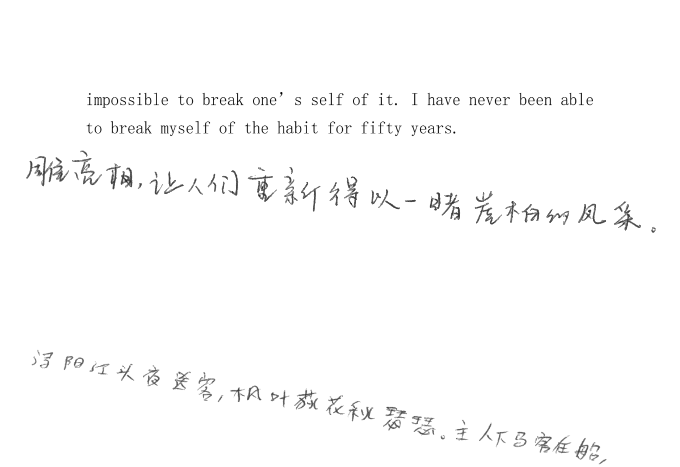 impossible to break one’s self of it. I have never been able
to break myself of the habit for fifty years.
雕亮相,让人们重新得以一睹崖柏的风采。
浔阳江头夜送客,枫叶荻花秋瑟瑟。主人下马客在船,